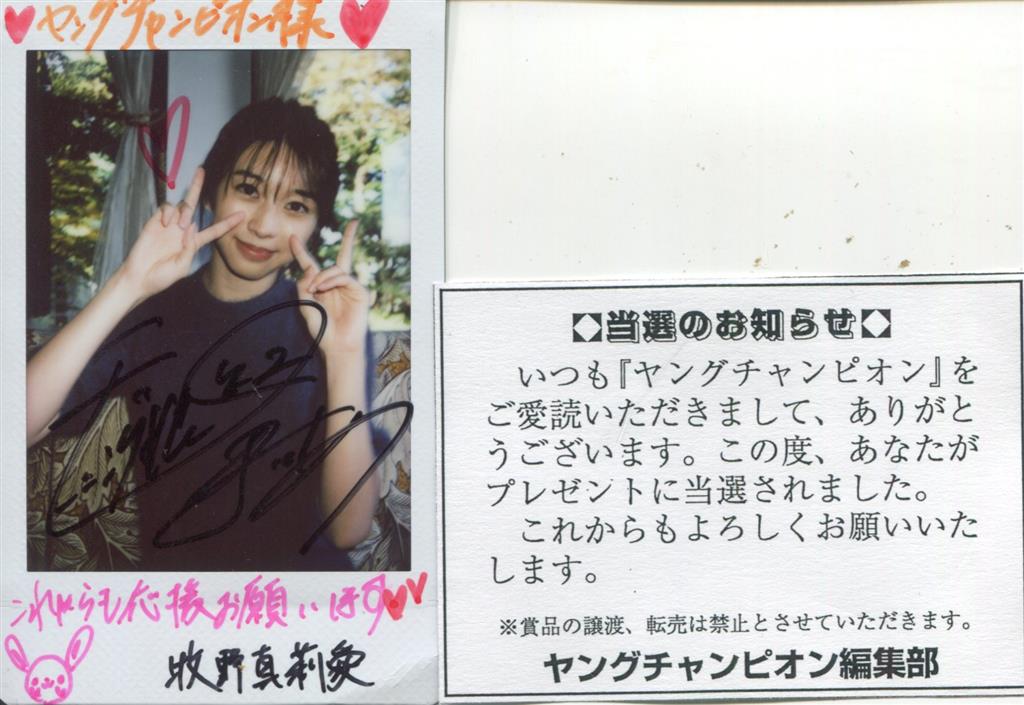 ヤングチャンピオン様
これからも応援お願いします
牧野真莉愛
◇当選のお知らせ◇
いつも『ヤングチャンピオン』を
ご愛読いただきまして、ありがと
うございます。この度、あなたが
プレゼントに当選されました。
これからもよろしくお願いいた
します。
※賞品の譲渡、転売は禁止とさせていただきます。
ヤングチャンピオン編集部